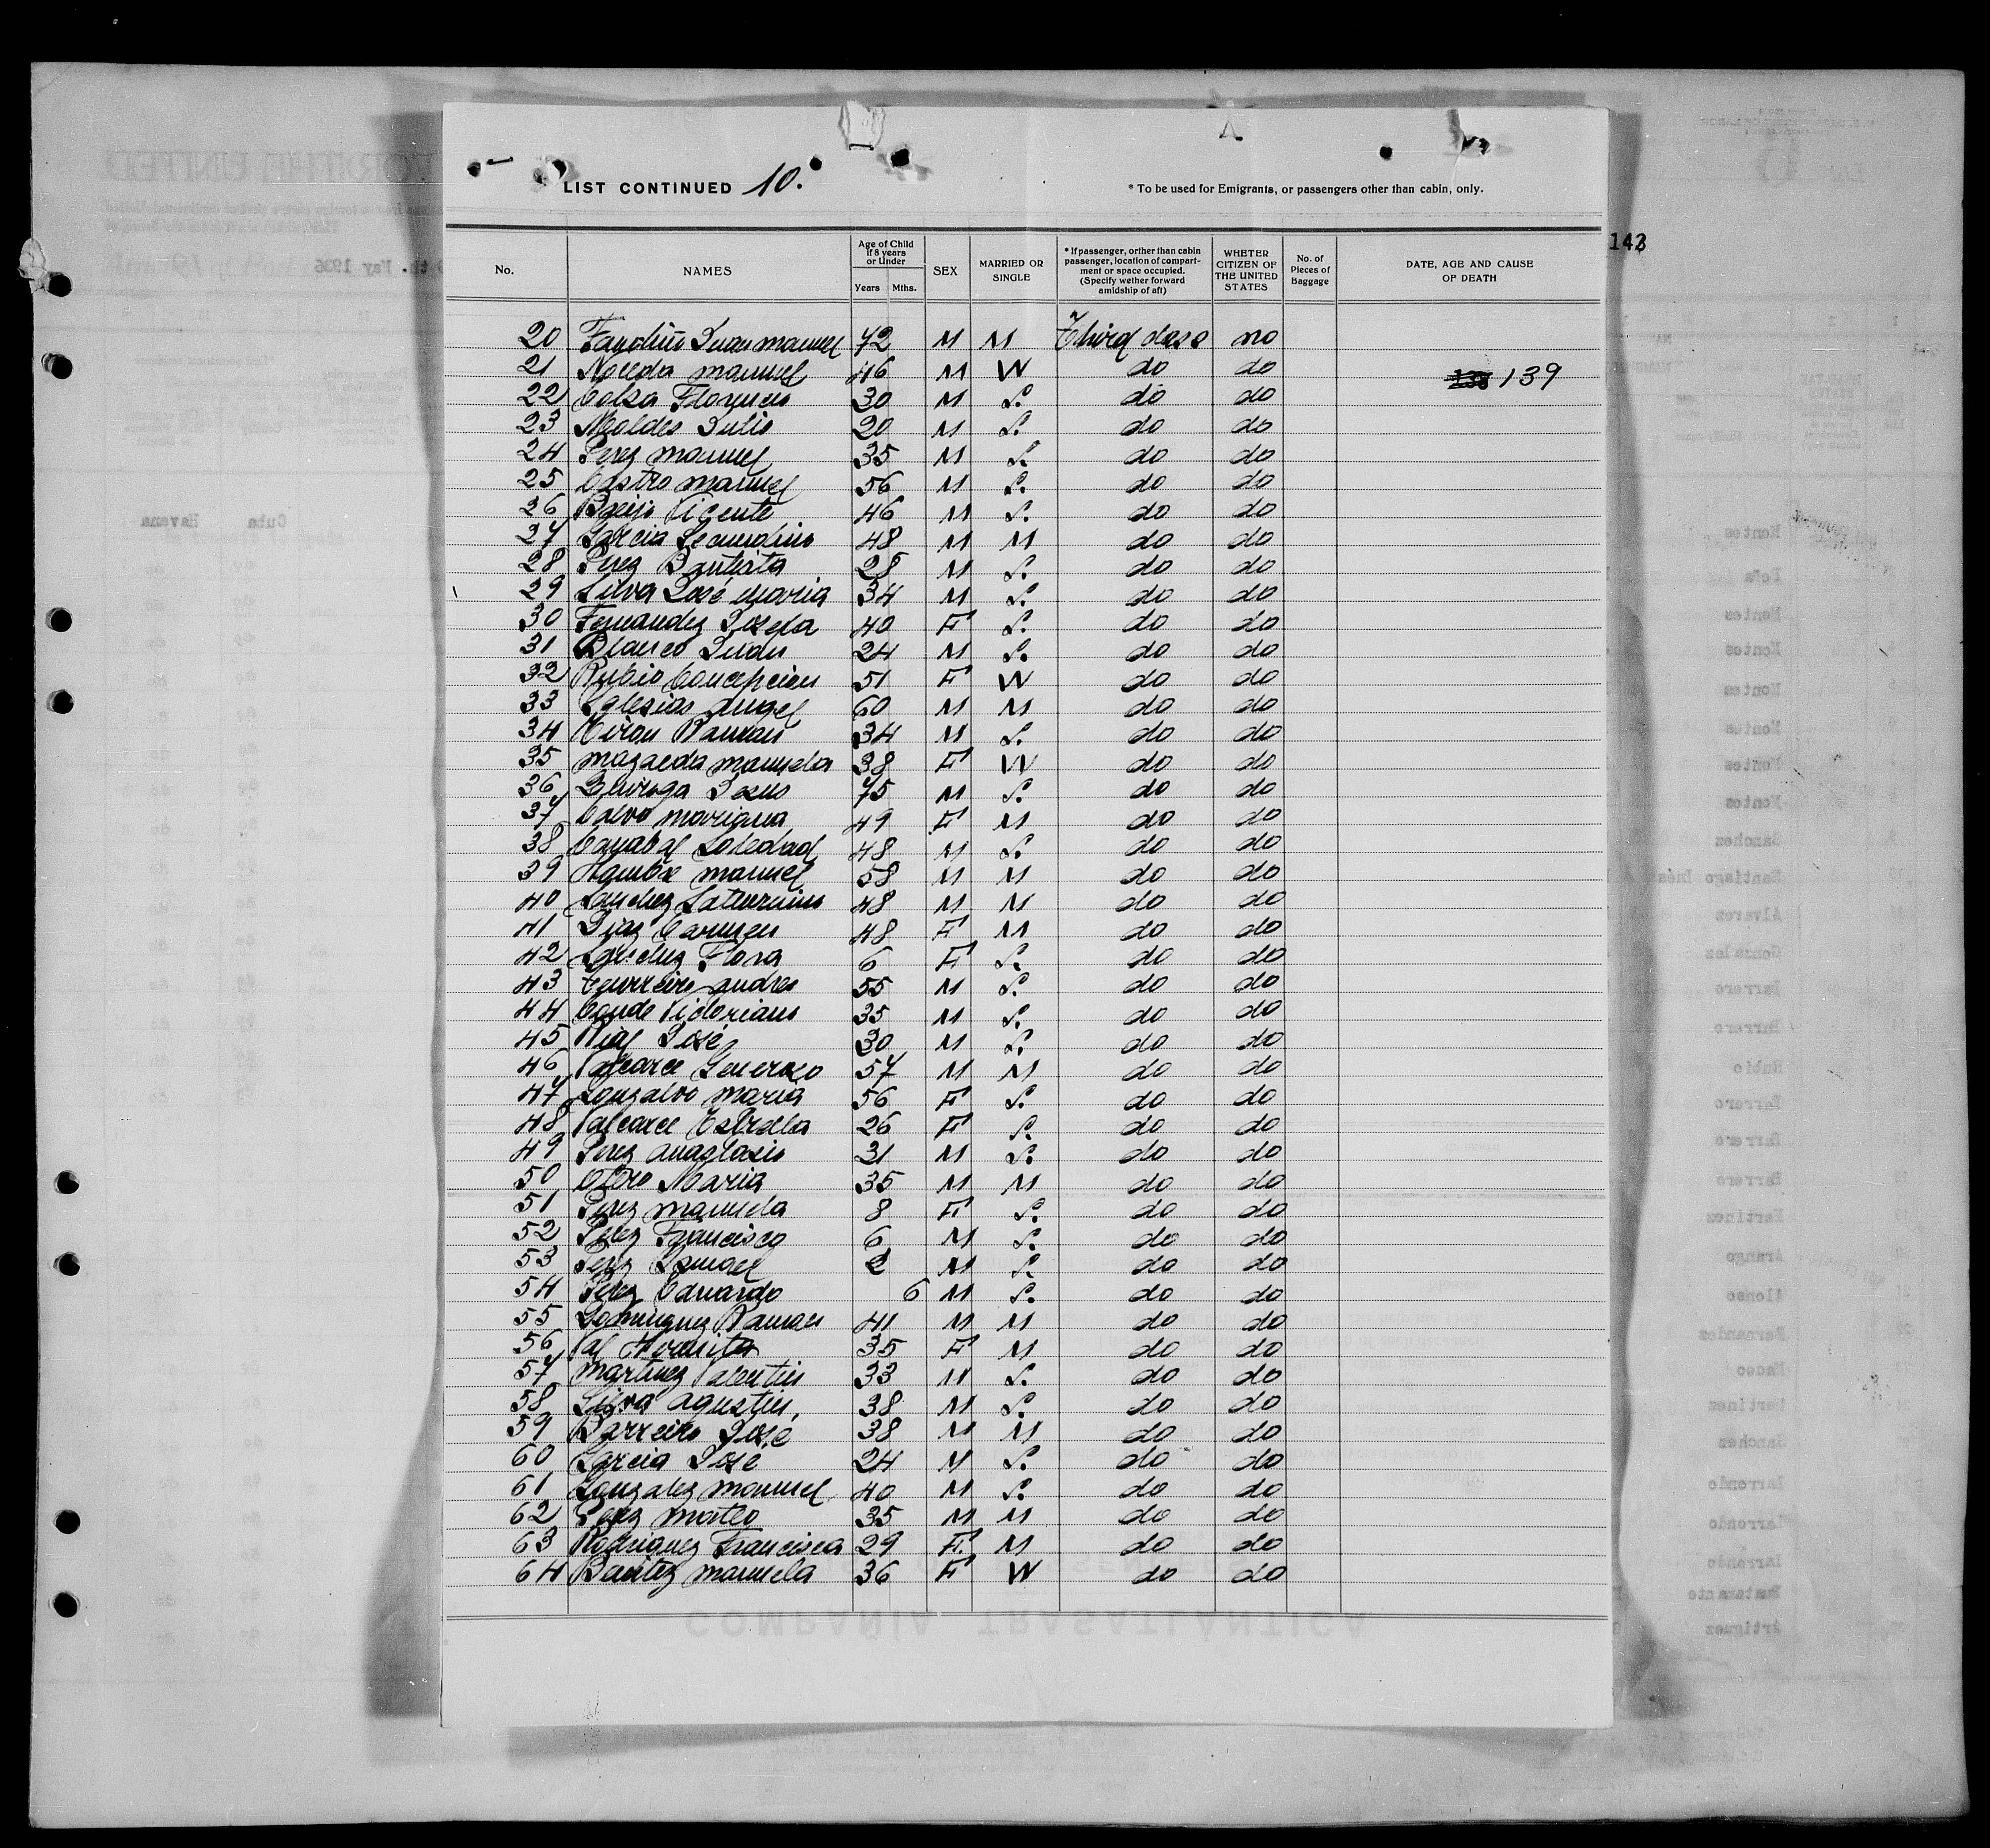 LIST CONTINUED 10.
* To be used for Emigrants, or passengers other than cabin, only.
142
No. NAMES Age of Child if 8 years or Under Years Mths. SEX MARRIED OR SINGLE * If passenger, orther than cabin passenger, location of compartment or space occupied. (Specify wether forward amidship of aft) WHETER CITIZEN OF THE UNITED STATES No. of Pieces of Baggage DATE, AGE AND CAUSE OF DEATH
20 Fandiño Juan Manuel 72 M M Third class no
21 Noceda Manuel 46 M W do do 139
22 30 M S. do do
23 Moldes Julio 20 M S. do do
24 Perez Manuel 35 M S. do do
25 Castro Manuel 56 M S. do do
26 Vicente 46 M S. do do
27 Garcia Secundino 48 M M do do
28 Perez Bautista 28 M S. do do
29 Silva José Maria 34 M S. do do
30 Fernandez Josefa 40 F S. do do
31 Blanco Juan 24 M S. do do
32 Rubio Concepcion 51 F W do do
33 Iglesias Angel 60 M M do do
34 Ramon 34 M S. do do
35 Manuela 38 F W do do
36 Quiroga Jesus 75 M S. do do
37 Calvo 49 F M do do
38 Soledad 48 M S. do do
39 Manuel 58 M M do do
40 Sanchez Saturnino 48 M M do do
41 Diaz Carmen 48 F M do do
42 Sanchez Flora 6 F S. do do
43 Andres 55 M S. do do
44 Conde Victoriano 35 M S. do do
45 Rial José 30 M S. do do
46 Valcarce Generoso 57 M M do do
47 Gonzalvo Maria 56 F S. do do
48 Valcarce Estrella 26 F S. do do
49 Perez Anastasio 31 M S. do do
50 Otero Maria 35 M M do do
51 Perez Manuela 8 F S. do do
52 Perez Francisco 6 M S. do do
53 Perez Ismael 2 M S. do do
54 Perez Eduardo 6 M S. do do
55 Dominguez Ramon 41 M M do do
56 Val 35 F M do do
57 Martinez Valentin 33 M S. do do
58 Silva Agustin 38 M S. do do
59 Barreiro José 38 M M do do
60 Garcia José 24 M S. do do
61 Gonzalez Manuel 40 M S. do do
62 Mateo 35 M M do do
63 Rodriguez Francisca 29 F. M do do
64 Manuela 36 F W do do
COMPAÑÍA TRASATLÁNTICA